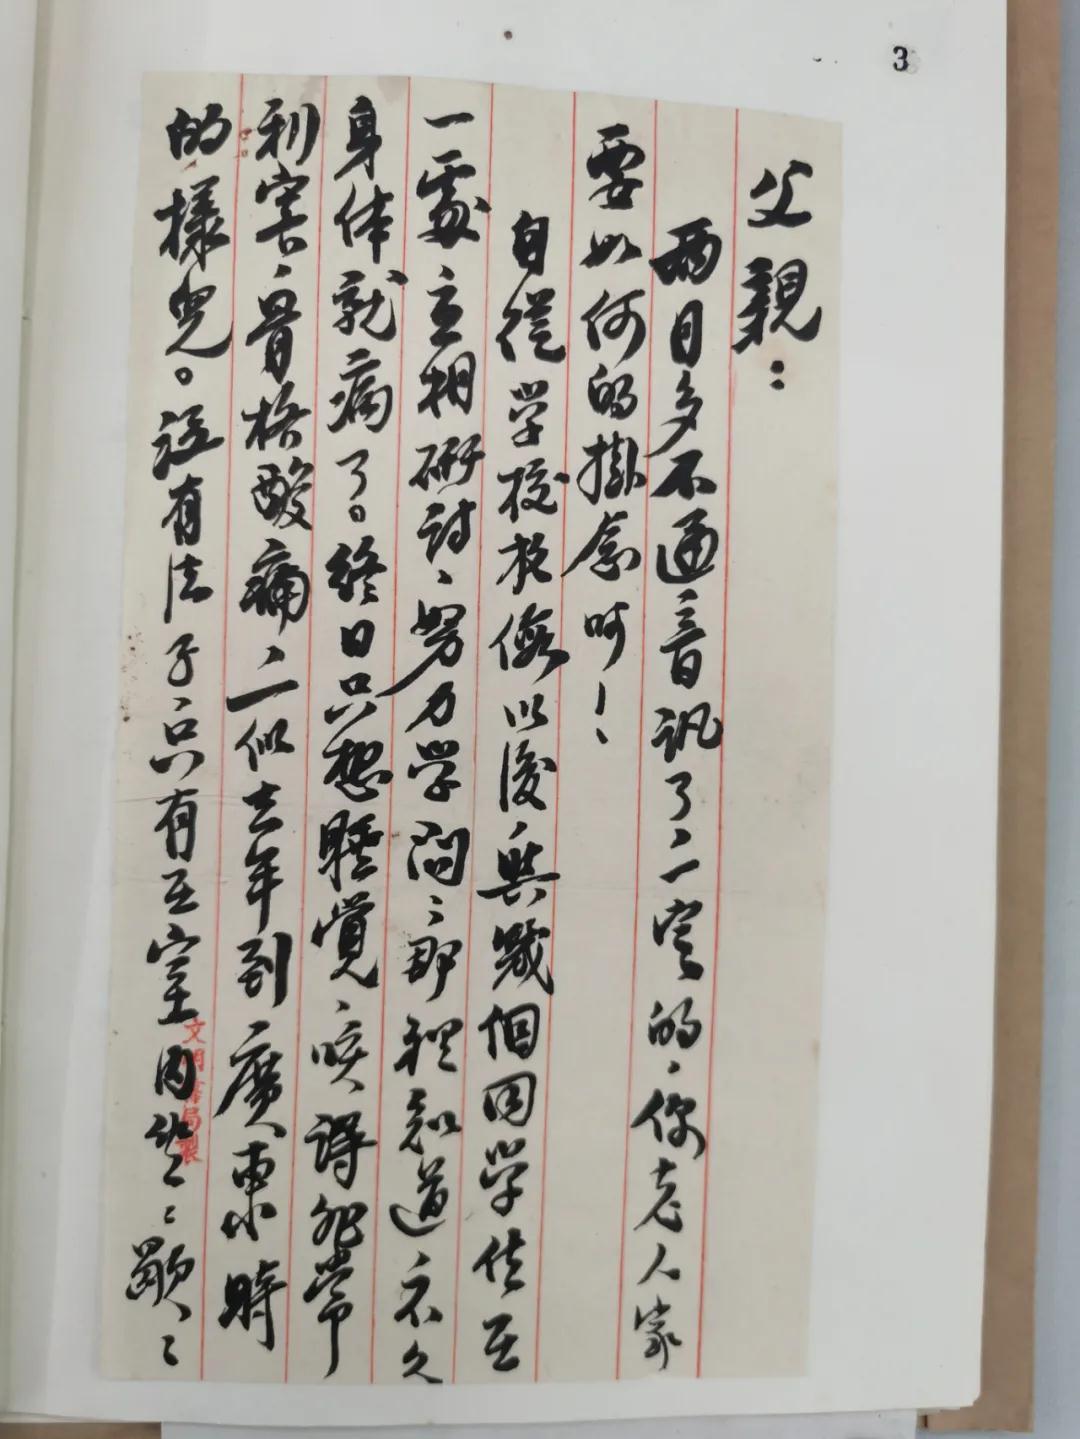 3
父親：
兩月多不通音訊了、一定的、你老人家
要如何的掛念呵！、
自從学校放假以後、與幾個同学住在
一處互相研討、努力学問、那裡知道不久
身体就病了。終日只想睡覺、咳得非常
利害、骨格酸痛、一似去年到廣東時
的樣兒。没有法子、只有在室内坐坐、歇歇